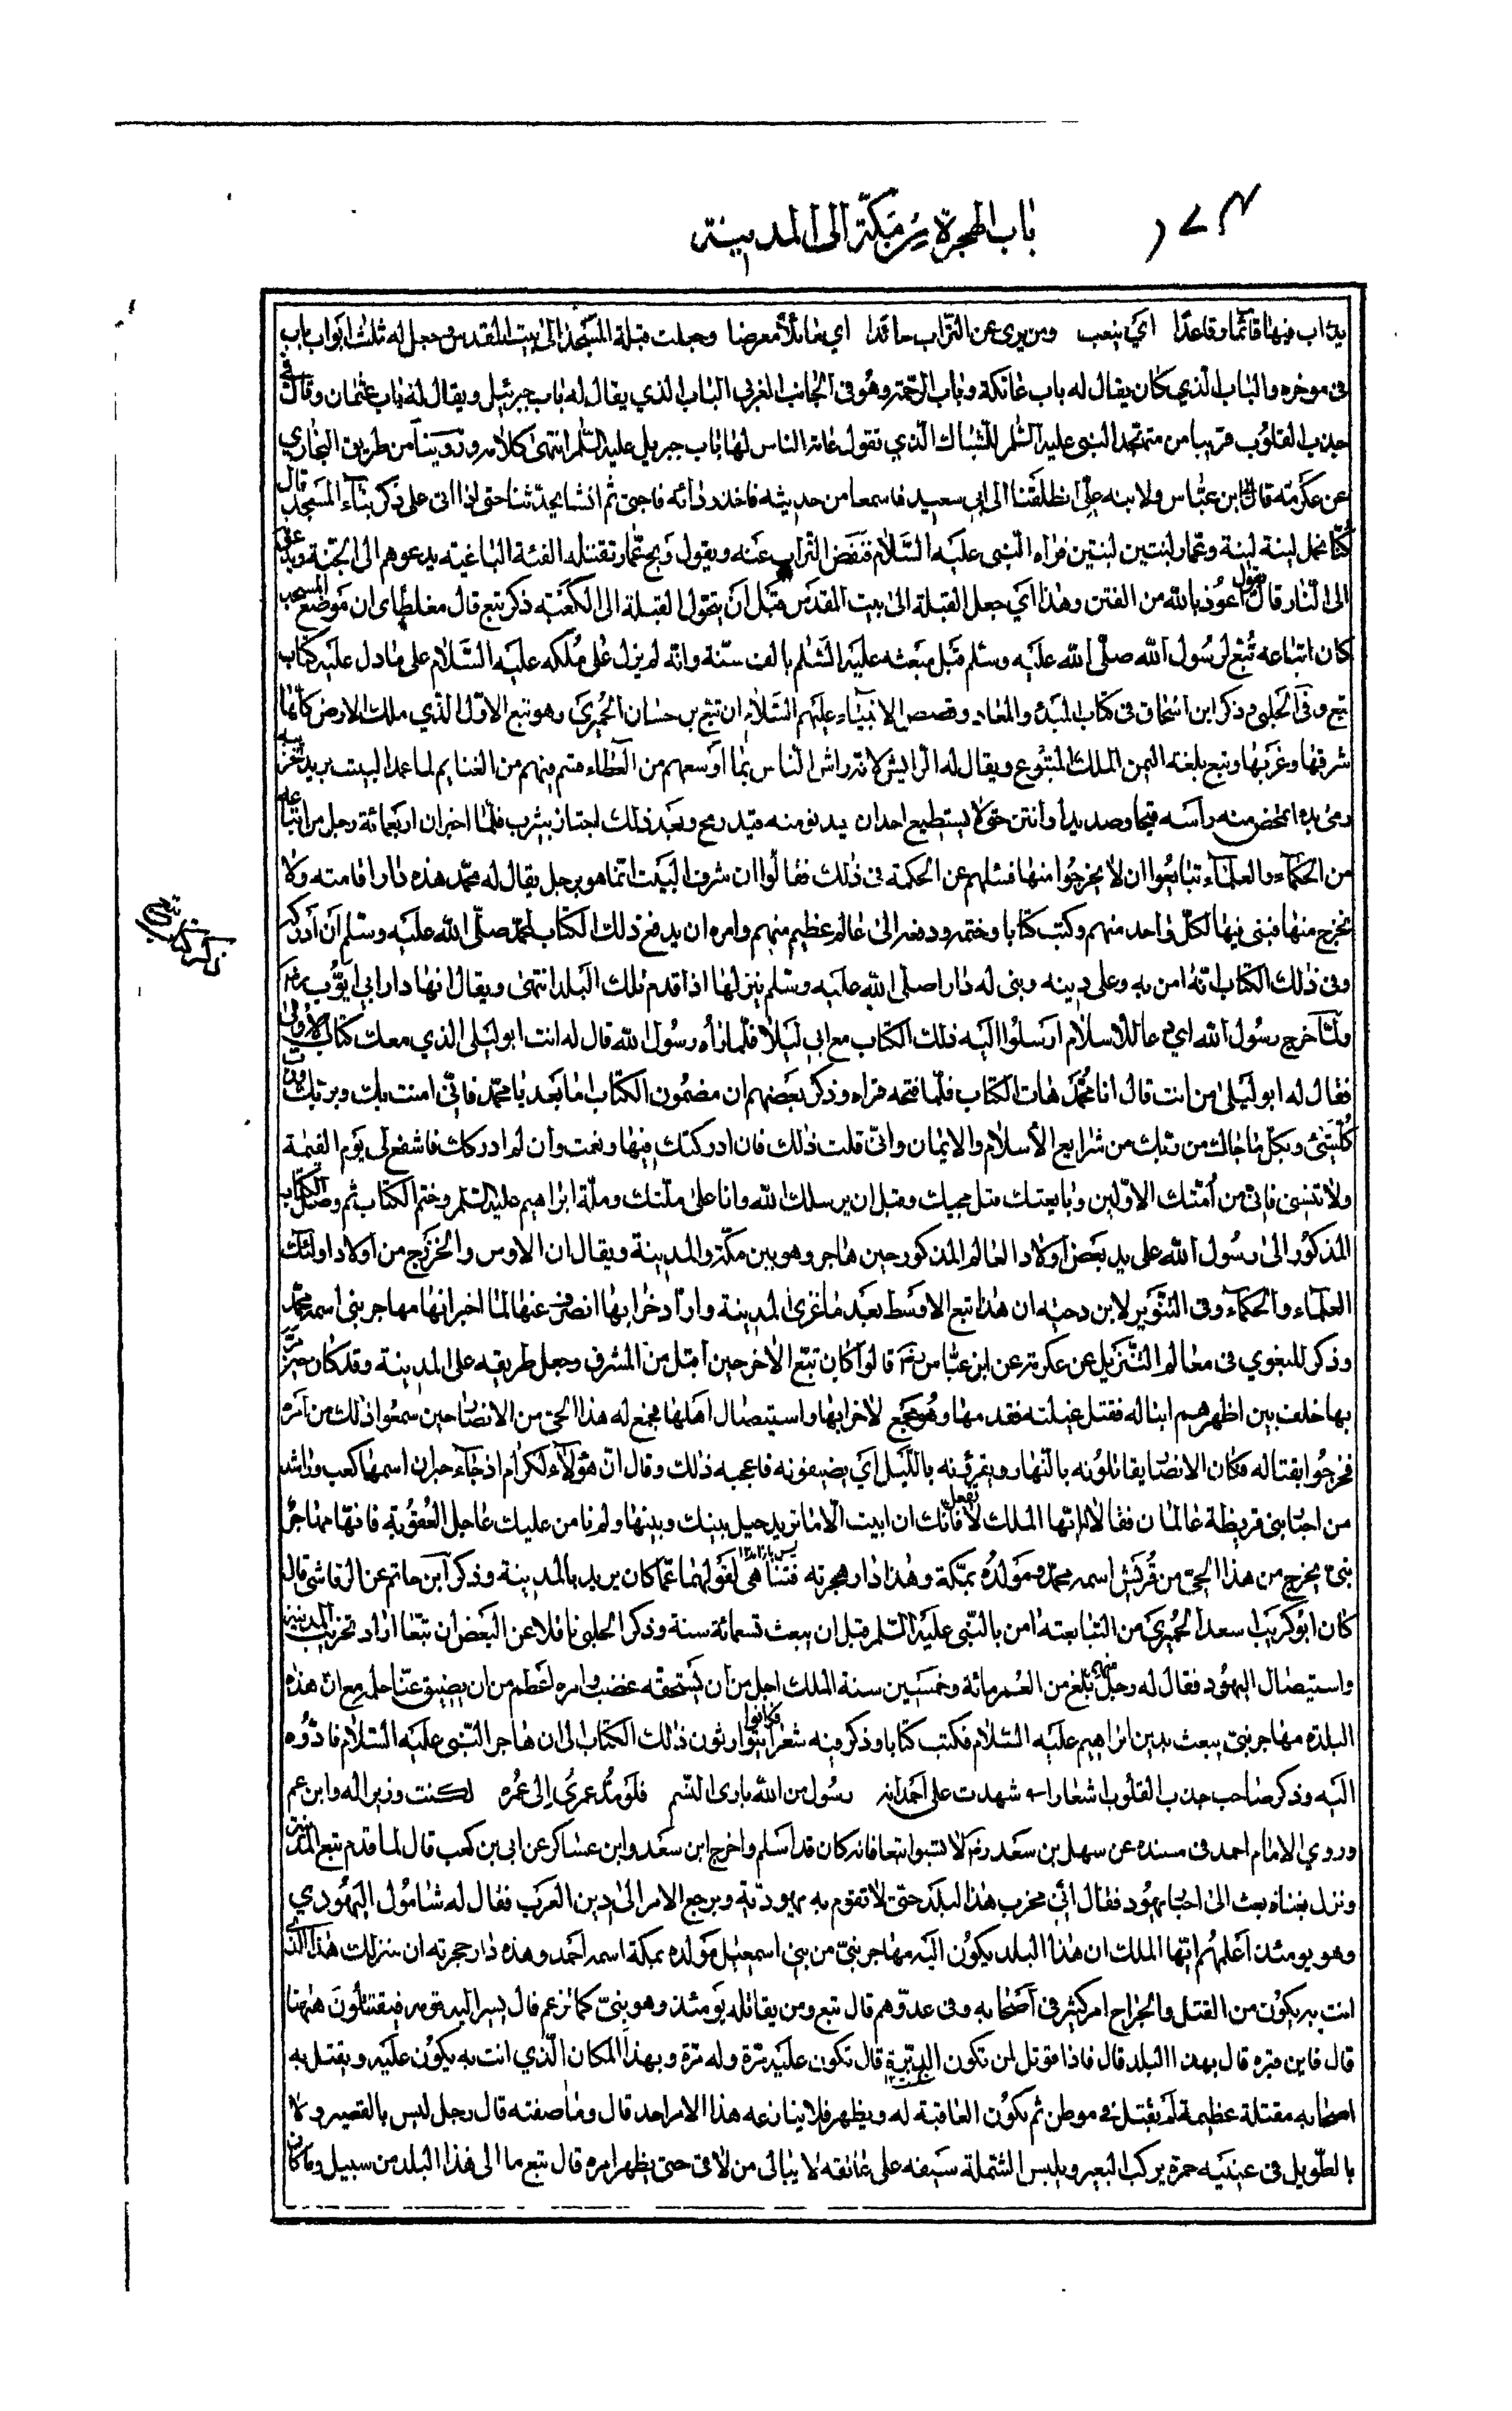 ١٧٣ باب الهجرة من مكة الى المدينة
يدٔاب فيها قائما وقاعدا اي يتعب ومن يرى عن التراب حائدا اي مائلاً معرضا وجعلت قبلة المسجد الى بيت المقدس وجعل له ثلث ابواب باب
فى موخره والباب الذي كان يقال له باب عاتكة وباب الرحمة وهو فى الجانب الغربي الباب الذي يقال له باب جبرئيل ويقال له باب عثمان وقال فى
جذب القلوب قريبا من متهجد النبى عليه السلم للشباك الذي تقول عامة الناس لها باب جبريل عليه السلم انتهى كلامه وروينا من طريق البخاري
عن عكرمة قال لى ابن عباس ولابنه علي انطلقنا الى ابى سعيد فاسمعا من حديثه فاخذ ردائه فاحتبى ثم انشا يحدثنا حتى اذا اتى على ذكر بناء المسجد قال
كنا نحمل لبنة لبنة وعمار لبنتين لبنتين فراه النبى عليه السلام فنفض التراب عنه ويقول ويح عمار تقتله الفئة الباغية يدعوهم الى الجنة ويدعونه
الى النار قال يقول اعوذ بالله من الفتن وهذا اي جعل القبلة الى بيت المقدس قبل ان يتحول القبلة الى الكعبة ذكر تبع قال مغلطاى ان موضع المسجد
كان ابتاعه تبع لرسول الله صلى الله عليه وسلم قبل مبعثه عليه السلم بالف سنة وانه لم يزل على ملكه عليه السلام على ما دل عليه كتاب
تبع وفى الحلبى وذكر ابن اسحاق فى كتاب المبدء والمعاد وقصص الانبياء عليهم السلام ان تبع بن حسان الحميرى وهو تبع الاول الذي ملك الارض كلها
شرقها وغربها وتبع بلغة اليمن الملك المتبوع ويقال له الرايش لانه راش الناس بما اوسعهم من العطاء وقسم فيهم من الغنايم لما عمد البيت يريد تخريبه
رمى بداء تمخض منه رأسه قيحا وصديدا وانتن حتى لا يستطيع احد ان يدنو منه قيد رمح وبعد ذلك اجتاز بيثرب فلما اخبر ان اربعمائة رجل من اتباعه
من الحكماء والعلماء تبايعوا ان لا يخرجوا منها فسئلهم عن الحكمة فى ذلك فقالوا ان شرف البيت انما هو برجل يقال له محمد هذه دار اقامته ولا
يخرج منها فبنى فيها لكل واحد منهم وكتب كتابا وختمه ودفعه الى عالم عظيم منهم وامره ان يدفع ذلك الكتاب لمحمد صلى الله عليه وسلم ان ادركه
وفى ذلك الكتاب انه امن به وعلى دينه وبنى له دارا صلى الله عليه وسلم ينزلها اذا قدم تلك البلد انتهى ويقال انها دار ابي ايوب
ولما خرج رسول الله اي دعا للاسلام ارسلوا اليه ذلك الكتاب مع ابى ليلا فلما راه رسول الله قال له انت ابو ليلى الذي معك كتاب
فقال له ابو ليلى من انت قال انا محمد هات الكتاب فلما فتحه قراه وذكر بعضهم ان مضمون الكتاب اما بعد يا محمد فانى امنت بك وبربك ورب
كل شئ وبكل ما جاءك من ربك من شرايع الاسلام والايمان وانى قلت ذلك فان ادركتك فيها ونعمت وان لم ادركك فاشفع لى يوم القيمة
ولا تنسى فانى من امتك الاولين وبايعتك قبل مجيئك وقبل ان يرسلك الله وانا على ملتك وملة ابراهيم عليه السلم وختم الكتاب ثم وصل الكتاب
المذكور الى رسول الله على يد بعض اولاد العالم المذكور حين هاجر وهو بين مكة والمدينة ويقال ان الاوس والخزرج من اولاد اولئك
العلماء والحكماء وفى التنوير لابن دحية ان هذا تبع الاوسط بعد ما غزى المدينة واراد خرابها انصرف عنها لما اخبر انها مهاجر نبى اسمه محمد
وذكر للبغوي فى معالم التنزيل عن عكرمة عن ابن عباس رضه قالوا كان تبع الاخر حين اقبل من المشرق وجعل طريقه على المدينة وقد كان حين مر
بها خلف بين اظهرهم ابنا له فقتل غيلة فقدمها وهو مجمع لاخرابها واستيصال اهلها فجمع له هذا الحى من الانصار حين سمعوا ذلك من امره
فخرجوا بقتاله فكان الانصار يقاتلونه بالنهار ويقرؤنه بالليل اي يضيفونه فاعجبه ذلك وقال ان هؤلاء لكرام اذ جاء حبران اسمها كعب وراشد
من احبار بنى قريظة عالمان فقالا ايها الملك لا تفعل فانك ان ابيت الا ما تريد حيل بينك وبينها ولم نامن عليك عاجل العقوبة فانها مهاجر
نبى يخرج من هذا الحى من قريش اسمه محمد ومولده بمكة وهذا دار هجرته فتناهى لقولهما عما كان يريد بالمدينة وذكر ابن حاتم عن الرقاشى قال
كان ابو كريب اسعد الحميرى من التبابعة امن بالنبى عليه السلم قبل ان يبعث تسعمائة سنة وذكر الحلبى ناقلا عن البعض ان تبعا اراد تخريب المدينة
واستيصال اليهود فقال له رجل منهم بلغ من العمر مائة وخمسين سنة الملك اجل من ان يستحقه غضب وامره اعظم من ان يضيق عنا حلمه مع ان هذه
البلدة مهاجر نبى يبعث بدين ابراهيم عليه السلام فكتب كتابا وذكر فيه شعرا فكانوا يتوارثون ذلك الكتاب الى ان هاجر النبى عليه السلام فادوه
اليه وذكر صاحب جذب القلوب اشعاراته شهدت على احمد انه رسول من الله بارى النسم فلو مد عمري الى عمره لكنت وزيرا له وابن عم
وروي الامام احمد فى مسنده عن سهل بن سعد رضه لا تسبوا تبعا فانه كان قد اسلم واخرج ابن سعد وابن عساكر عن ابى بن كعب قال لما قدم تبع المدينة
ونزل بقناة بعث الى احبار يهود فقال انى مخرب هذا البلد حتى لا تقوم به يهودية ويرجع الامر الى دين العرب فقال له شامول اليهودي
وهو يومئذ اعلمهم ايها الملك ان هذا البلد يكون اليه مهاجر نبى من بنى اسمعيل مولده بمكة اسمه احمد وهذه دار هجرته ان منزلك هذا الذي
انت به يكون من القتل والجراح امر كثير فى اصحابه وفى عدوهم قال تبع ومن يقاتله يومئذ وهو نبى كما تزعم قال يسير اليه قومه فيقتتلون ههنا
قال فاين قبره قال بهذا البلد قال فاذا قوتل لمن تكون الدبرة قال تكون عليه مرة وله مرة وبهذا المكان الذي انت به يكون عليه ويقتل به
اصحابه مقتلة عظيمة لم يقتل فى موطن ثم تكون العاقبة له ويظهر فلا ينازعه هذا الامر احد قال وما صفته قال رجل ليس بالقصير ولا
بالطويل فى عينيه حمرة يركب البعير ويلبس الشملة سيفه على عاتقه لا يبالى من لاقى حتى يظهر امره قال تبع ما الى هذا البلد من سبيل وما كان